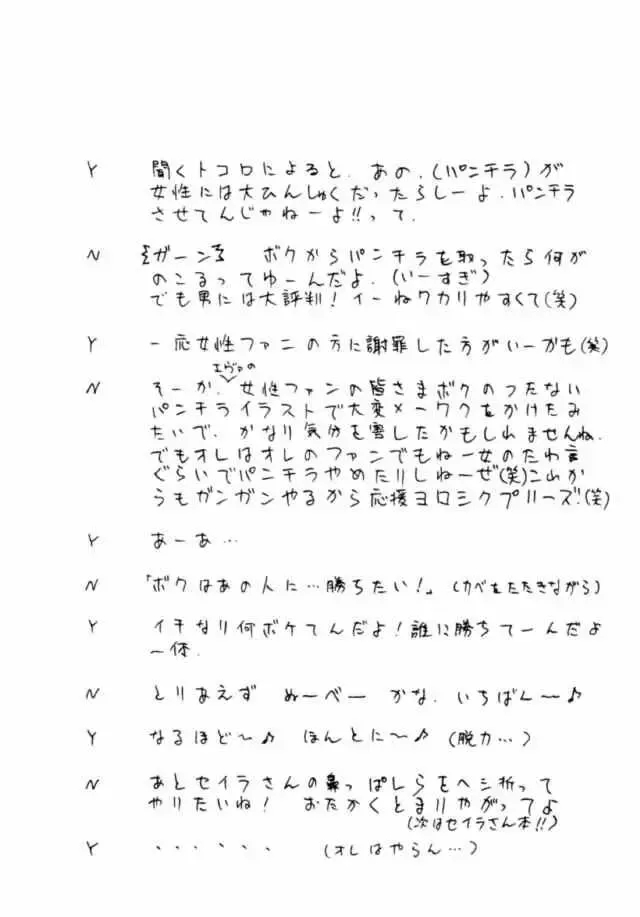 Y 聞くトコロによると、あの、(パンチラ)が
女性には大ひんしゅくだったらしーよ。パンチラ
させてんじゃねーよ!!って。
N ガーン ボクからパンチラを取ったら何が
のこるってゆーんだよ。(いーすぎ)
でも男には大評判!イーねワカリやすくて(笑)
Y 一応女性ファンの方に謝罪した方がいーかも(笑)
エヴァの
N そーか、女性ファンの皆さまボクのつたない
パンチライラストで大変メーワクをかけたみ
たいで、かなり気分を害したかもしれませんね。
でもオレはオレのファンでもねー女のたわ言
ぐらいでパンチラやめたりしねーぜ(笑)これか
らもガンガンやるから応援ヨロシクプリーズ!(笑)
Y あーあ…
N 「ボクはあの人に…勝ちたい!」(カベをたたきながら)
Y イキなり何ボケてんだよ!誰に勝ちてーんだよ
一体.
N とりあえず ぬーべー かな. いちばん〜♪
Y なるほど〜♪ ほんとに〜♪ (脱力…)
N あとセイラさんの鼻っぱしらをヘシ折って
やりたいね! おたかくとまりやがってよ
(次はセイラさん本!!)
Y ・・・・・・ (オレはやらん…)